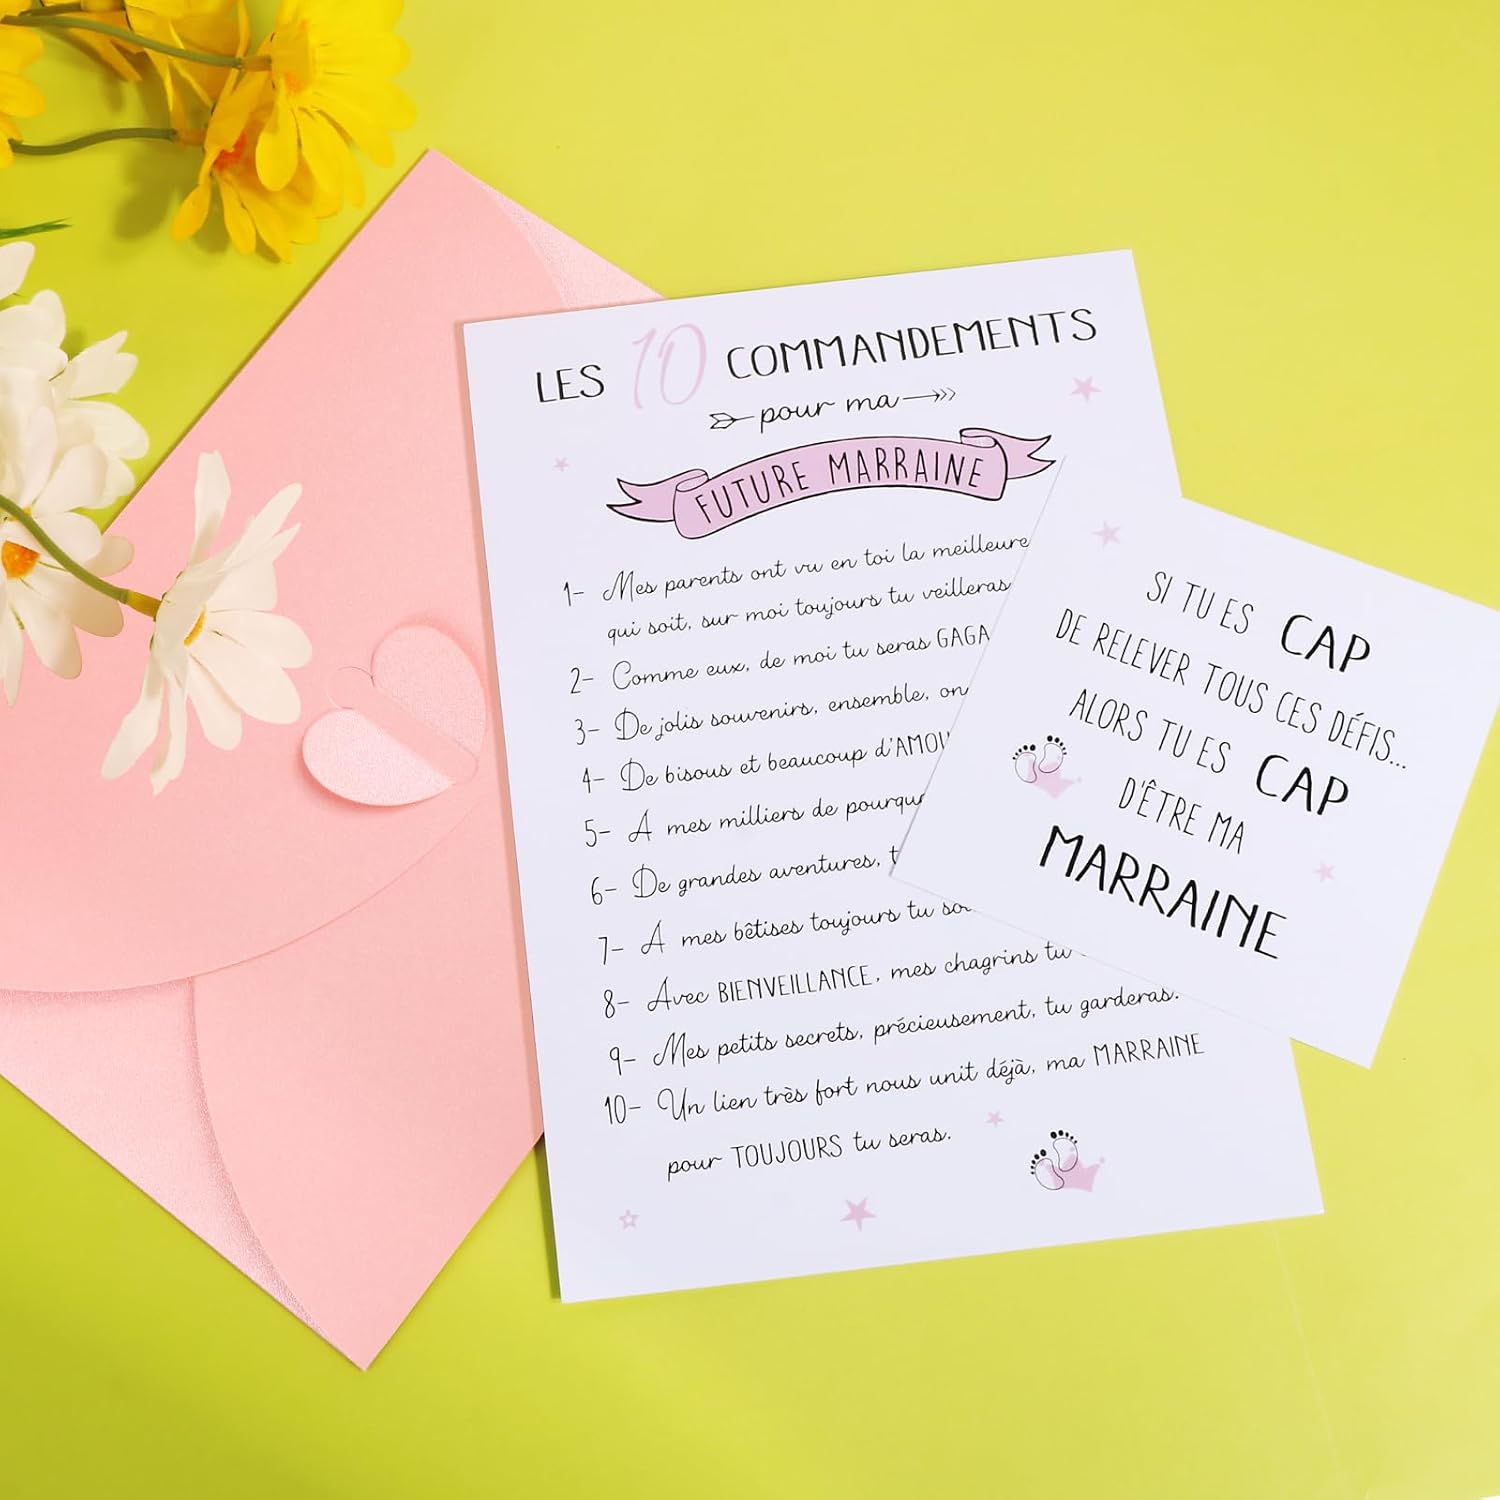 LES 10 COMMANDEMENTS
pour ma
FUTURE MARRAINE
1- Mes parents ont vu en toi la meilleure
qui soit, sur moi toujours tu veilleras
2- Comme eux, de moi tu seras GAGA
3- De jolis souvenirs, ensemble, on
4- De bisous et beaucoup d'AMOU
5- A mes milliers de pourqu
6- De grandes aventures, t
7- A mes bêtises toujours tu
8- Avec BIENVEILLANCE, mes chagrins tu
9- Mes petits secrets, précieusement, tu garderas.
10- Un lien très fort nous unit déjà, ma MARRAINE
pour TOUJOURS tu seras.
SI TU ES CAP
DE RELEVER TOUS CES DÉFIS...
ALORS TU ES CAP
D'ÊTRE MA
MARRAINE